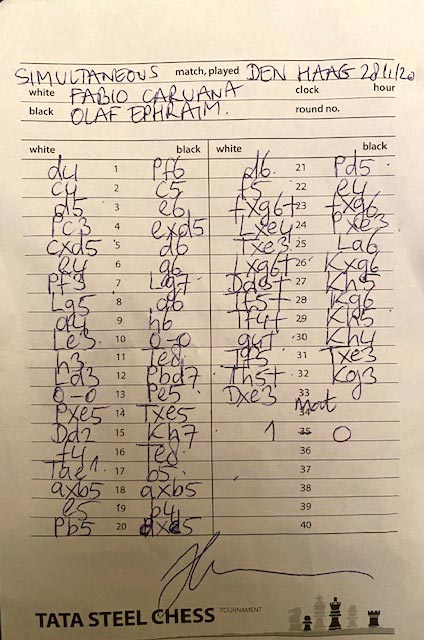 SIMULTANEOUS match, played DEN HAAG 28/1/20
white FABIO CARUANA clock hour
black OLAF EPHRAIM. round no.
white black white black
d4 1 Pf6 d6. 21 Pd5
c4 2 c5 f5 22 e4
d5 3 e6 fxg6+ 23 fxg6
Pc3 4 exd5 Lxe4 24 Pxe3
cxd5 5 d6 Txe3 25 La6
e4 6 g6 Lxg6+ 26 Kxg6
Pf3 7 Lg7 Dd3+ 27 Kh5
Lg5 8 a6 Tf5+ 28 Kg6
a4 9 h6 Tf4+ 29 Kh5
Le3 10 0-0 g4+ 30 Kh4
h3 11 Te8 Tf5 31 Txe3
Ld3 12 Pbd7 Th5+ 32 Kg3
0-0 13 Pe5 Dxe3 33
Pxe5 14 Txe5 34 Mat
Dd2 15 Kh7 1 35 0
f4 16 Te8 36
Tae1. 17 b5 37
axb5 18 axb5 38
e5 19 b4 39
Pb5 20 dxe5 40
TATA STEEL CHESS TOURNAMENT